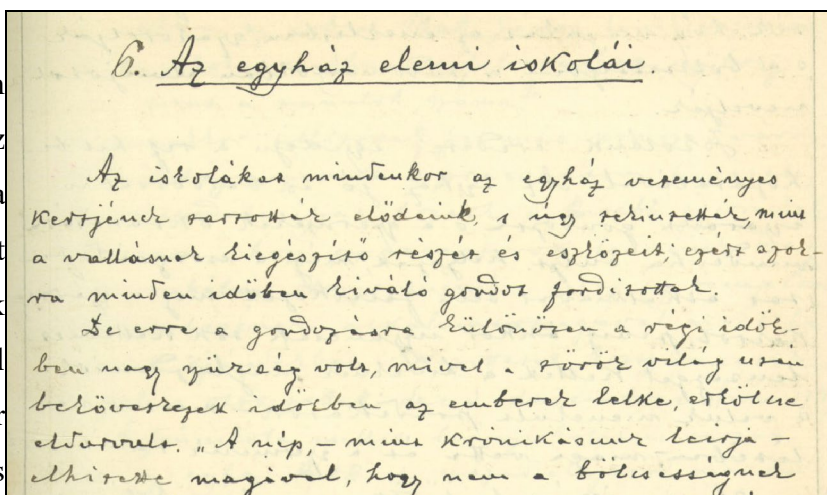 6. Az egyház elemi iskolái.
Az iskolákat mindenkor az egyház veteményes
kertjének tartották elődeink s úgy tekintették, mint
a vallásnak kiegészítő részét és eszközeit; ezért azok-
ra minden időben kiváló gondot fordítottak.
De erre a gondozásra különösen a régi idők-
ben nagy szükség volt, mivel a török világ után
bekövetkezett időkben az emberek lelke, erkölcse
eldurvult. „A nép, – mint krónikásunk leírja –
elhitette magával, hogy nem a bölcsességnek